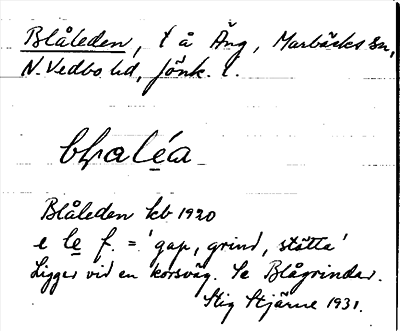 Blåleden, t å Äng, Marbäcks sn,
N. Vedbo hd, Jönk. l.
Blåleden kb 1920
e le f. = 'gap, grind, stätta'
Ligger vid en korsväg. Se Blågrindar.
Stig Stjärne 1931.